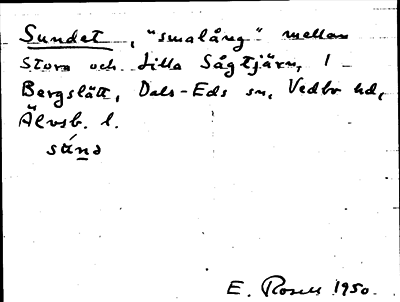 Sundet, "smalång" mellan
Stora och Lilla Sågtjärn, 1
Bergslätt, Dals-Eds sn, Vedbo hd,
Älvsb. l.
súnə
E. Rosell 1950.